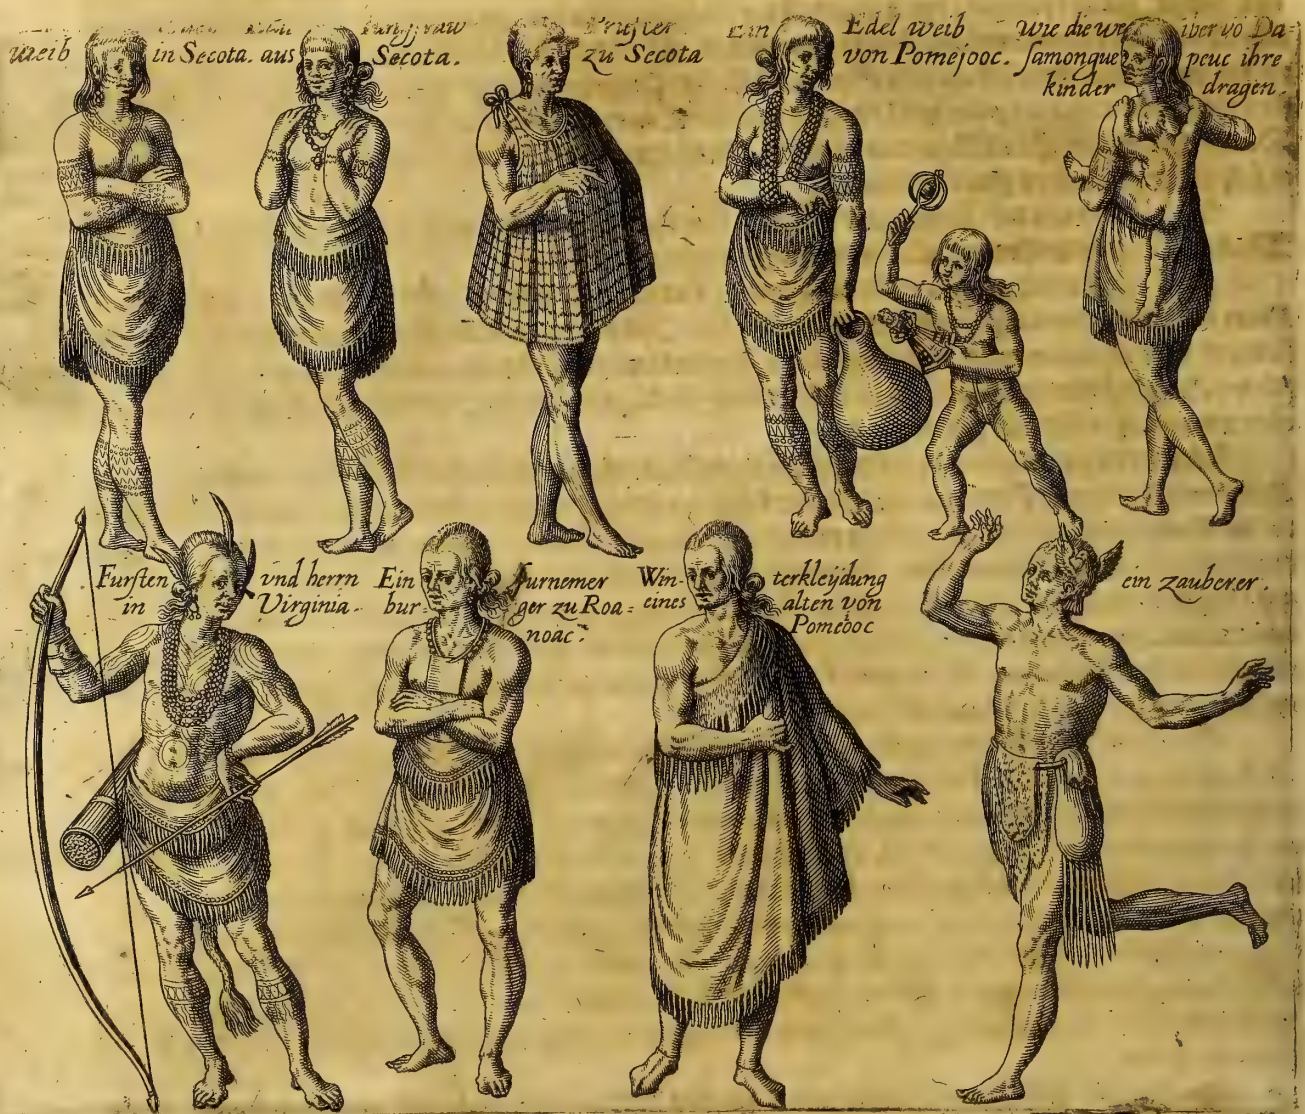 weib in Secota.
aus Secota.
Priester
zu Secota
Ein Edel weib
von Pomejooc.
Wie die we iber vo Da=
samonque peuc ihre
kinder dragen.
Fursten vnd herrn
in Virginia.
Ein furnemer
bur= ger zu Roa=
noac.
Win= terkleÿdung
eines alten von
Pomeooc
ein zauberer.